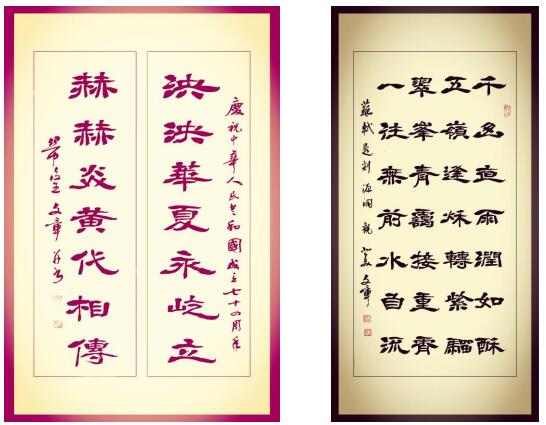 慶祝中華人民共和國成立七十四周年
泱泱華夏永屹立
赫赫炎黃代相傳
文章并書
千 雨潤如酥
五嶺逢秋轉紫
翠峯青靄接重齊
一往無前水自流
蘇軾 文章